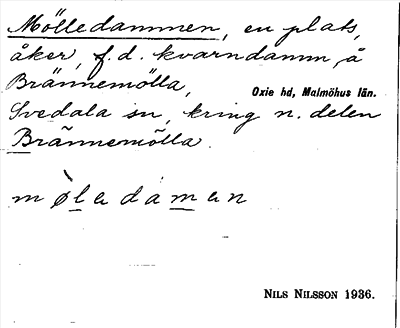 Mölledammen, en plats,
åker, f.d. kvarndamm, å
Brännemölla,
Oxie hd, Malmöhus län.
Svedala sn, kring n. delen
Brännemölla.
mø̀ladaman
NILS NILSSON 1936.